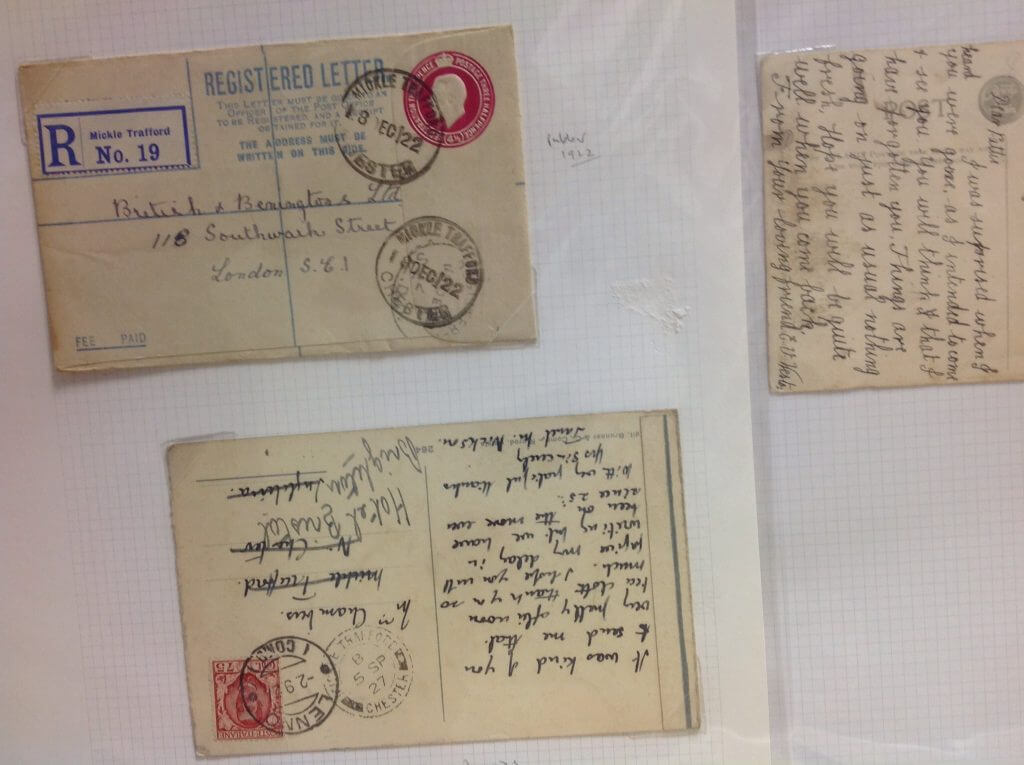 REGISTERED LETTER
THIS LETTER MUST BE GIVEN TO AN
OFFICER OF THE POST OFFICE
TO BE REGISTERED, AND A RECEIPT
OBTAINED FOR IT.
THE ADDRESS MUST BE
WRITTEN ON THIS SIDE.
R
Mickle Trafford
No. 19
POSTAGE THREE HALFPENCE
MICKLE TRAFFORD
9 DEC 22
CHESTER
British & Benington's Ltd
118 Southwark Street
London S.E.1
MICKLE TRAFFORD
9 DEC 22
CHESTER
FEE PAID
rubber
1922
I was surprised when I
heard you were gone, as I intended to come
& see you. You will think that I
have forgotten you. Things are
going on just as usual nothing
fresh. Hope you will be quite
well when you come back.
From your loving friend
It was kind of you
to send me that
very pretty afternoon
tea cloth thank you so
much. I hope you will
forgive my delay in
writing but we have
been on the move ever
since 25:
With very grateful thanks
Yrs sincerely
Janet M. Nickson.
264
Chambers.
Mickle Trafford.
Nr Chester
Hotel Bristol
Brighton
Inghilterra.
CENT 75
POSTE ITALIANE
E TRAFFORD
8
5 SP
27
CHESTER